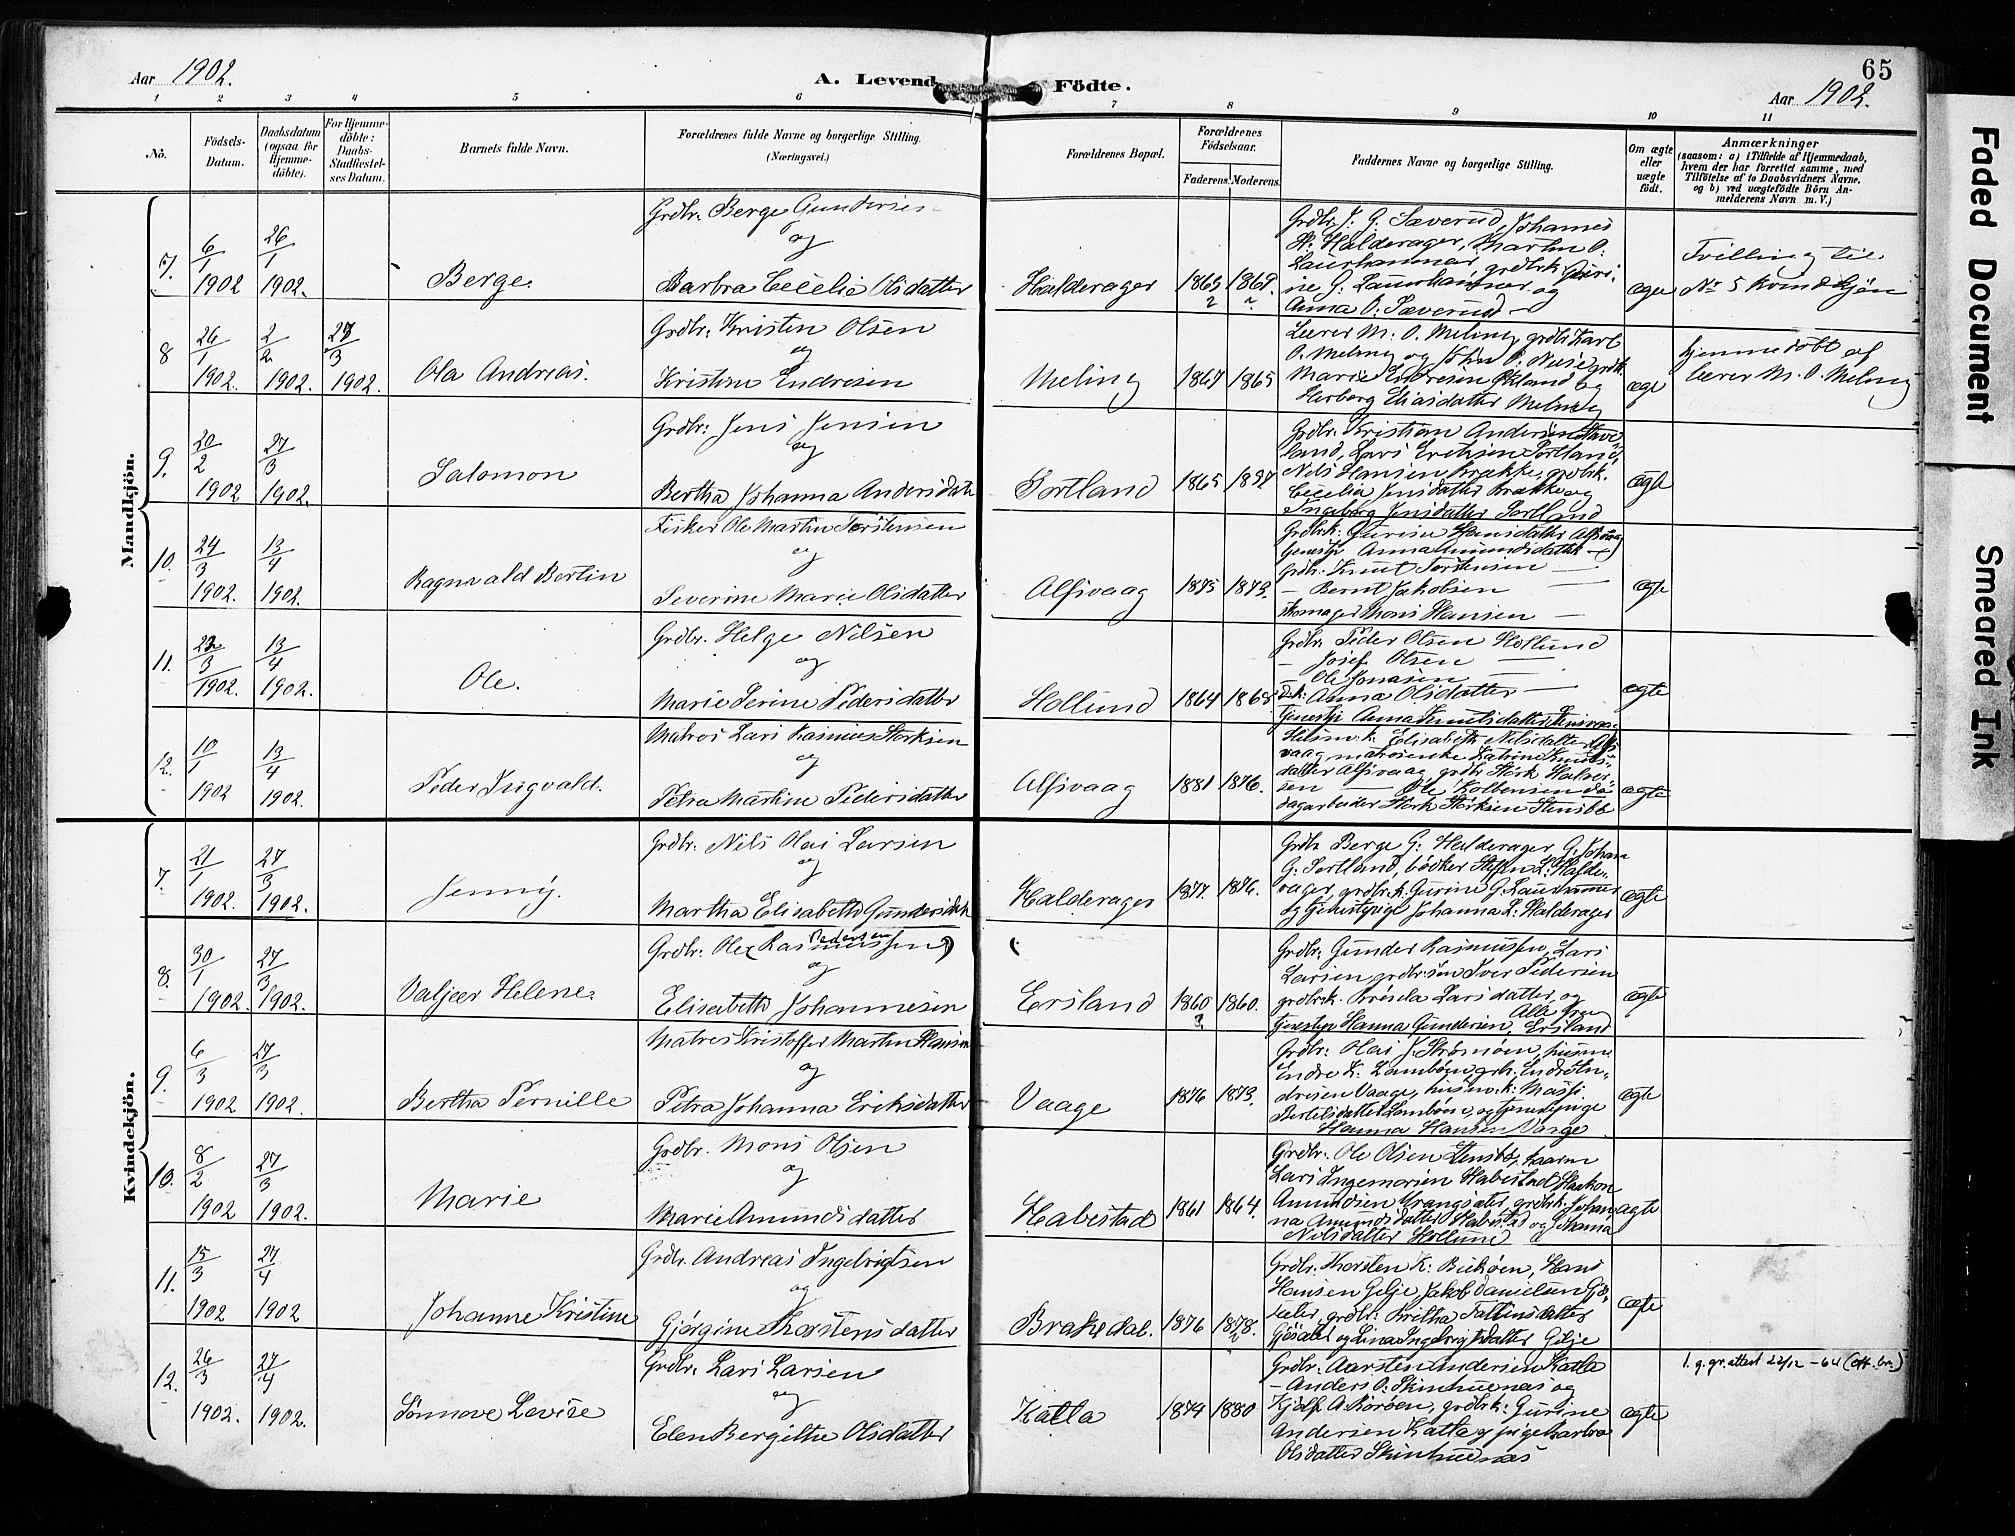 Aar 1902.
A. Levend
Födte.
65
Aar 1902.
1 2 3 4 5 6 7 8 9 10 11
No.
Födsels-
Datum.
Daabsdatum
(ogsaa for
Hjemme-
döbte).
For Hjemme-
döbte:
Daabs-
Stadfæstel-
ses Datum.
Barnets fulde Navn.
Forældrenes fulde Navne og borgerlige Stilling.
(Næringsvei.)
Forældrenes Bopæl.
Forældrenes
Födselsaar.
Faderens. Moderens.
Faddernes Navne og borgerlige Stilling.
Om ægte
eller
uægte
födt.
Anmærkninger
(saasom: a) i Tilfælde af Hjemmedaab,
hvem der har forrettet samme, med
Tilföielse af to Daabsvidners Navne.
og b) ved uægtefödte Börn An-
melderens Navn m. V.)
Mandkjön.
7. 6/1 1902 26/1 1902. Berge.
Grdbr. Berge Gundersen
og
Barbra Cecelia Olsdatter
Halderager 1869
Grdbr. J. G. Sæverud, Johannes
H. Halderager, Martin O.
Laurhammer, grdbrk.
G. Laurhammer og
Anna O. Sæverud
ægte
Tvilling til
No 5 Kvindekjön
8 26/1 1902. 2/2 1902. 27/3 1902. Ola Andreas.
Grdbr: Kristen Olsen
og
Kristine Endresen
Meling 1867 1865
Lærer M. O. Meling, grdbr Karl
O. Meling og John O.
Marie Endresen Økland og
Herborg Eliasdatter Meling
ægte
hjemmedöbt af
lærer M. O. Meling
9. 20/2 1902 27/3 1902. Salomon
Grdbr: Jens Jensen
og
Bertha Johanna Andersdatt
Sortland 1865
Grdbr: Kristian Andersen Have-
land, Lars Eriksen Sortland,
Nils Hansen Brække, grdbrk.
Cecelia Jensdatter Brække og
Ingeborg Jensdatter Sortland
ægte
10. 24/3 1902. 13/4 1902. Ragnvald Bertin
Fisker Ole Martin Torstensen
og
Severine Marie Olsdatter
Alfsvaag 1875 1873.
Grdbrk: Gurine Hansdatter Alfsvaag
tjenestp Anna Amundsdatter
Grdbr: Knut Torstensen —
— Bernt Jakobsen —
Skomager Mons Hansen —
ægte
11. 22/3 1902. 13/4 1902. Ole.
Grdbr. Helge Nilsen
og
Marie Serine Pedersdatter
Hollund 1864 1865
Grdbr. Peder Olsen Hollund
— Josef Olsen —
— Ole Jonasen —
Anna Olsdatter —
tjenestp Anna Knutsdatter
ægte
12. 10/1 1902 13/4 1902. Peder Ingvald.
Matros Lars Rasmus Størksen
og
Petra Martine Pedersdatter
Alfsvaag 1881 1876.
Husm. k. Elisabeth Nilsdatter Alfs
vaag matrosenke Katrine Knuds-
datter Alfsvaag, grdbr Størk Halvor-
sen — Ole Kolbensen
dagarbeider Størk Størksen Stensbø
ægte
Kvindekjön.
7. 21/1 1902. 27/3 1902. Jenny.
Grdbr: Nils Olai Larsen
og
Martha Elisabeth Gundersdatt
Halderager 1877. 1876.
Grdbr Berge G. Halderager G. Johan
G. Sortland, bödker Steffen L. Halde-
rager, grdbr. k. Gurine G. Laurhammer
og tjenestepige Johanna L. Halderager
ægte
8. 30/1 1902. 27/3 1902. Valjær Helene.
Grdbr: Ole (Rasmussen) Pedersen
og
Elisabeth Johannesen
(
Ersland 1860 ? 1860.
Grdbr: Gunder Rasmussen, Lars
Larsen, grdbr. sön Iver Pedersen
grdbrk. Larsdatter, og
tjenestp Hanna Gundersen, Alle Ersland
ægte
9. 6/3 1902 27/3 1902. Bertha Pernille
Matros Kristoffer Martin Hansen
og
Petra Johanna Eriksdatter
Vaage 1876 1873.
Grdbr: Olai J. Strømøen, husm
Endre K. Lambøen,
Vaage, husm. k.
Bertelsdatter Lambøen, og tjenestepige
Hanna Hansen Vaage
ægte
10. 8/2 1902 27/3 1902. Marie
Grdbr. Mons Olsen
og
Marie Amundsdatter
Habestad 1861 1864.
Grdbr: Ole Olsen Stensbø,
Lars Ingemorien Habestad Haakon
Amundsen Vrangsæter, grdbrk. Johan
na Amundsdatter Habestad og Johanna
Nilsdatter Hollund
ægte
11. 15/3 1902 27/4 1902 Johanne Kristine
Grdbr. Andreas Ingebrigtsen
og
Gjørgine Thorstensdatter
Brakedal. 1876 1878.
Grdbr. Thorsten K. Bukøen, Hans
Hansen Gilje, Jakob Danielsen
grdbr. Britha
og Lina Ingebrigtsdatter Gilje
ægte
12. 26/3 1902. 27/4 1902. Sönnove Lovise
Grdbr. Lars Larsen
og
Elen Bergithe Olsdatter
Katla 1874 1880
Grdbr: Aarsten Andersen Katla
— Anders O. Skinhuenæs og
A. Rörøen, grdbrk: Gurine
Andersen Katla og pige Barbra
Olsdatter Skinhuenæs
ægte
1. g. gr. attest 22/12 -64 (Off. br.)
Faded Document
Smeared Ink